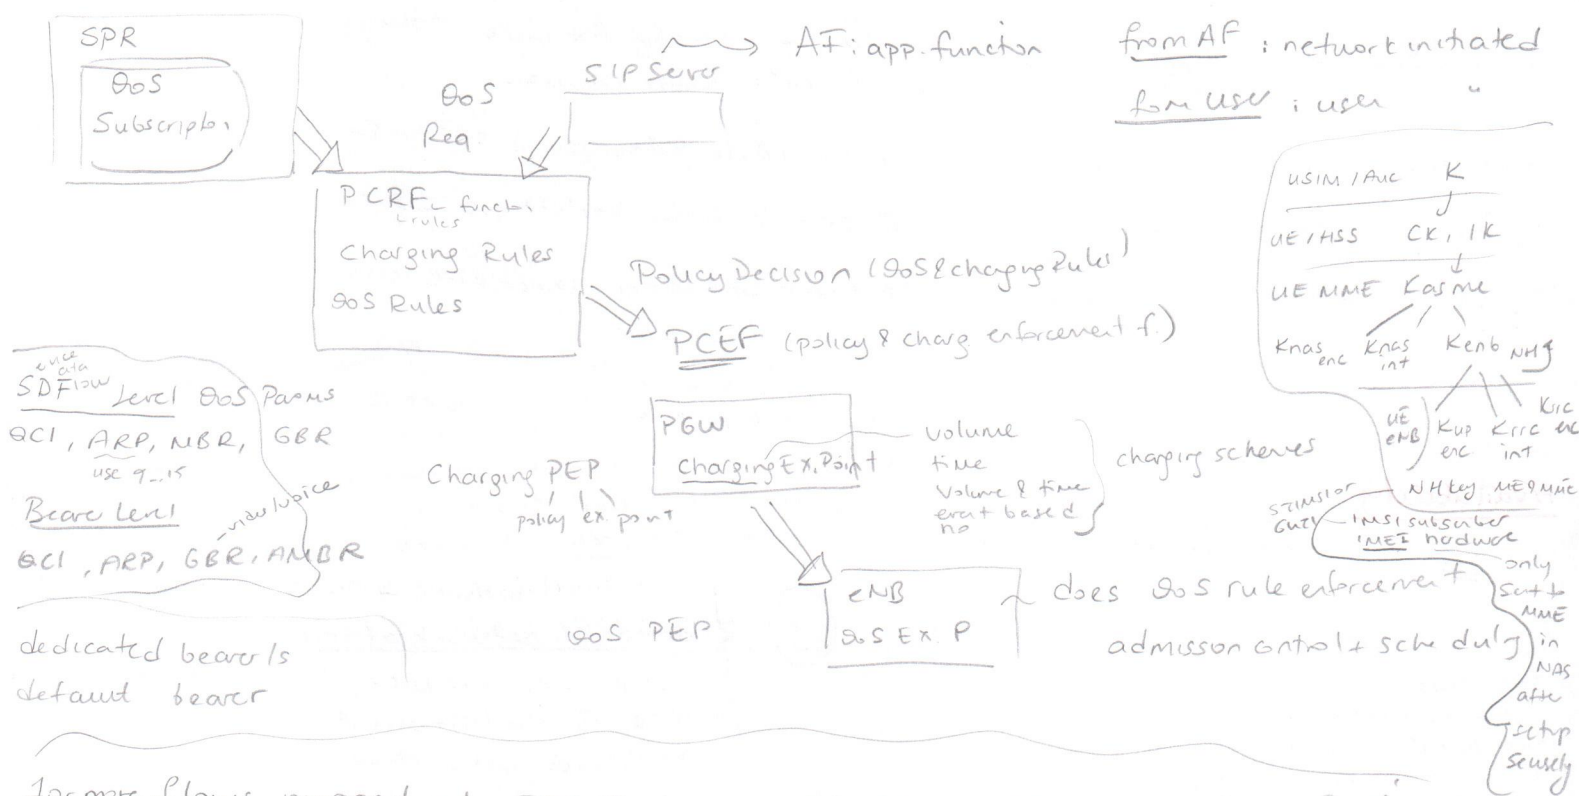 SPR
QoS
Subscription
QoS
Req
SIP Server
AF: app. function
from AF : network initiated
from User : user "
PCRF - function
rules
Charging Rules
QoS Rules
Policy Decision (QoS & charging Rules)
PCEF (policy & charg enforcement f.)
ervice
ata
SDFlow Level QoS Params
QCI, ARP, MBR, GBR
use 9...15
Bearer Level
video/voice
QCI, ARP, GBR, AMBR
dedicated bearer/s
default bearer
Charging PEP
policy ex. point
PGW
Charging Ex. Point
volume
time
volume & time
event based
no
charging schemes
QoS PEP
eNB
QoS Ex. P
does QoS rule enforcement
admisson control + scheduling
USIM / AuC K
UE / HSS CK, IK
UE MME Kasme
Knas enc Knas int Kenb NH
UE eNB Kup enc Krrc int Krrc enc
NH key ME & MME
S-TMSI or
GUTI - IMSI subscriber
IMEI hardware
only
sent to
MME
in
NAS
after
setup